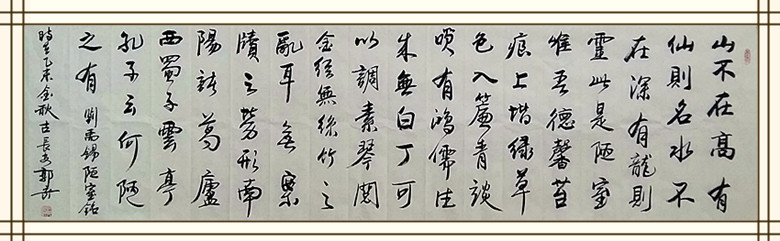 山不在高有
仙則名水不
在深有龍則
靈此是陋室
惟吾德馨苔
痕上堦緑草
色入簾青談
咲有鴻儒往
来無白丁可
以調素琴閲
金经無絲竹之
亂耳無案
牘之勞形南
陽諸葛廬
西蜀子雲亭
孔子云何陋
之有 劉禹錫陋室銘
時在乙未金秋古長安郭